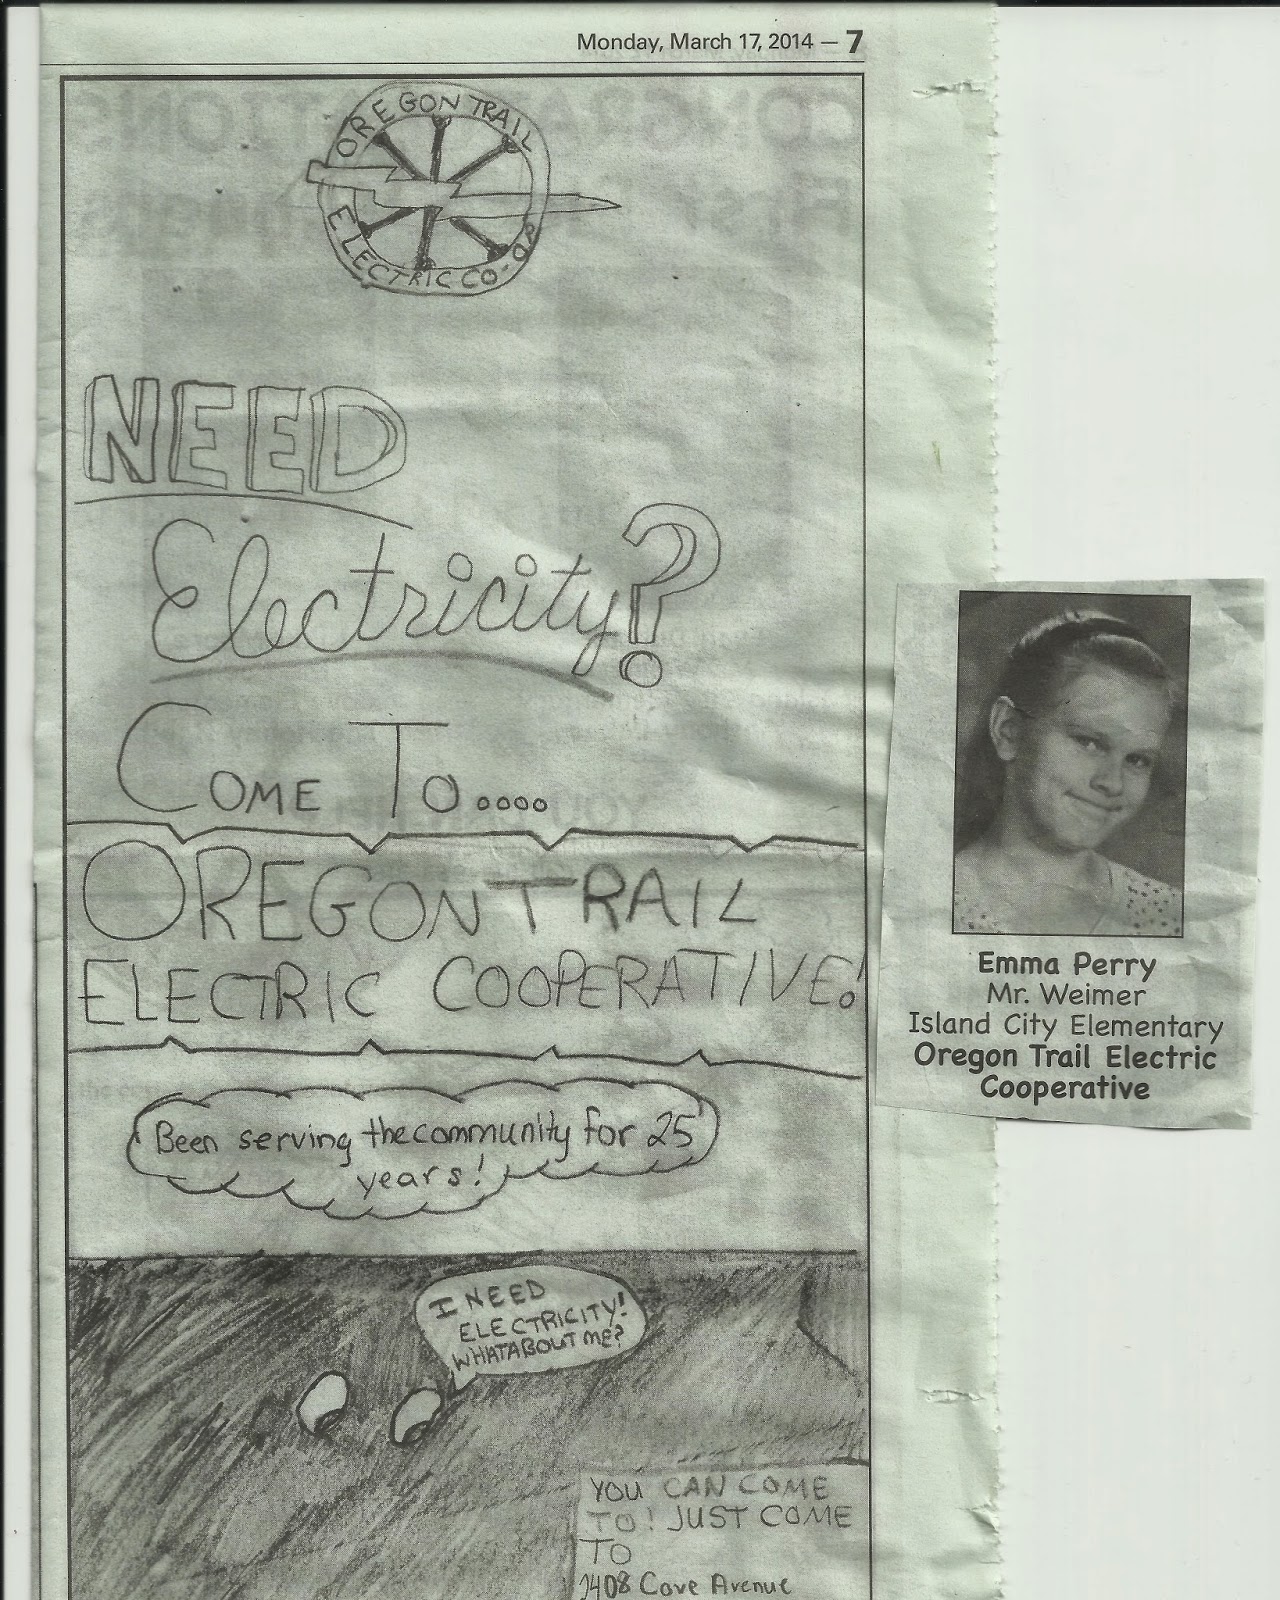 Monday, March 17, 2014 — 7
OREGON TRAIL
ELECTRIC CO-OP
NEED
Electricity?
COME TO....
OREGON TRAIL
ELECTRIC COOPERATIVE!
Been serving the community for 25
years!
I NEED
ELECTRICITY!
WHATABOUT ME?
YOU CAN COME
TO! JUST COME
TO
2408 Cove Avenue
Emma Perry
Mr. Weimer
Island City Elementary
Oregon Trail Electric
Cooperative